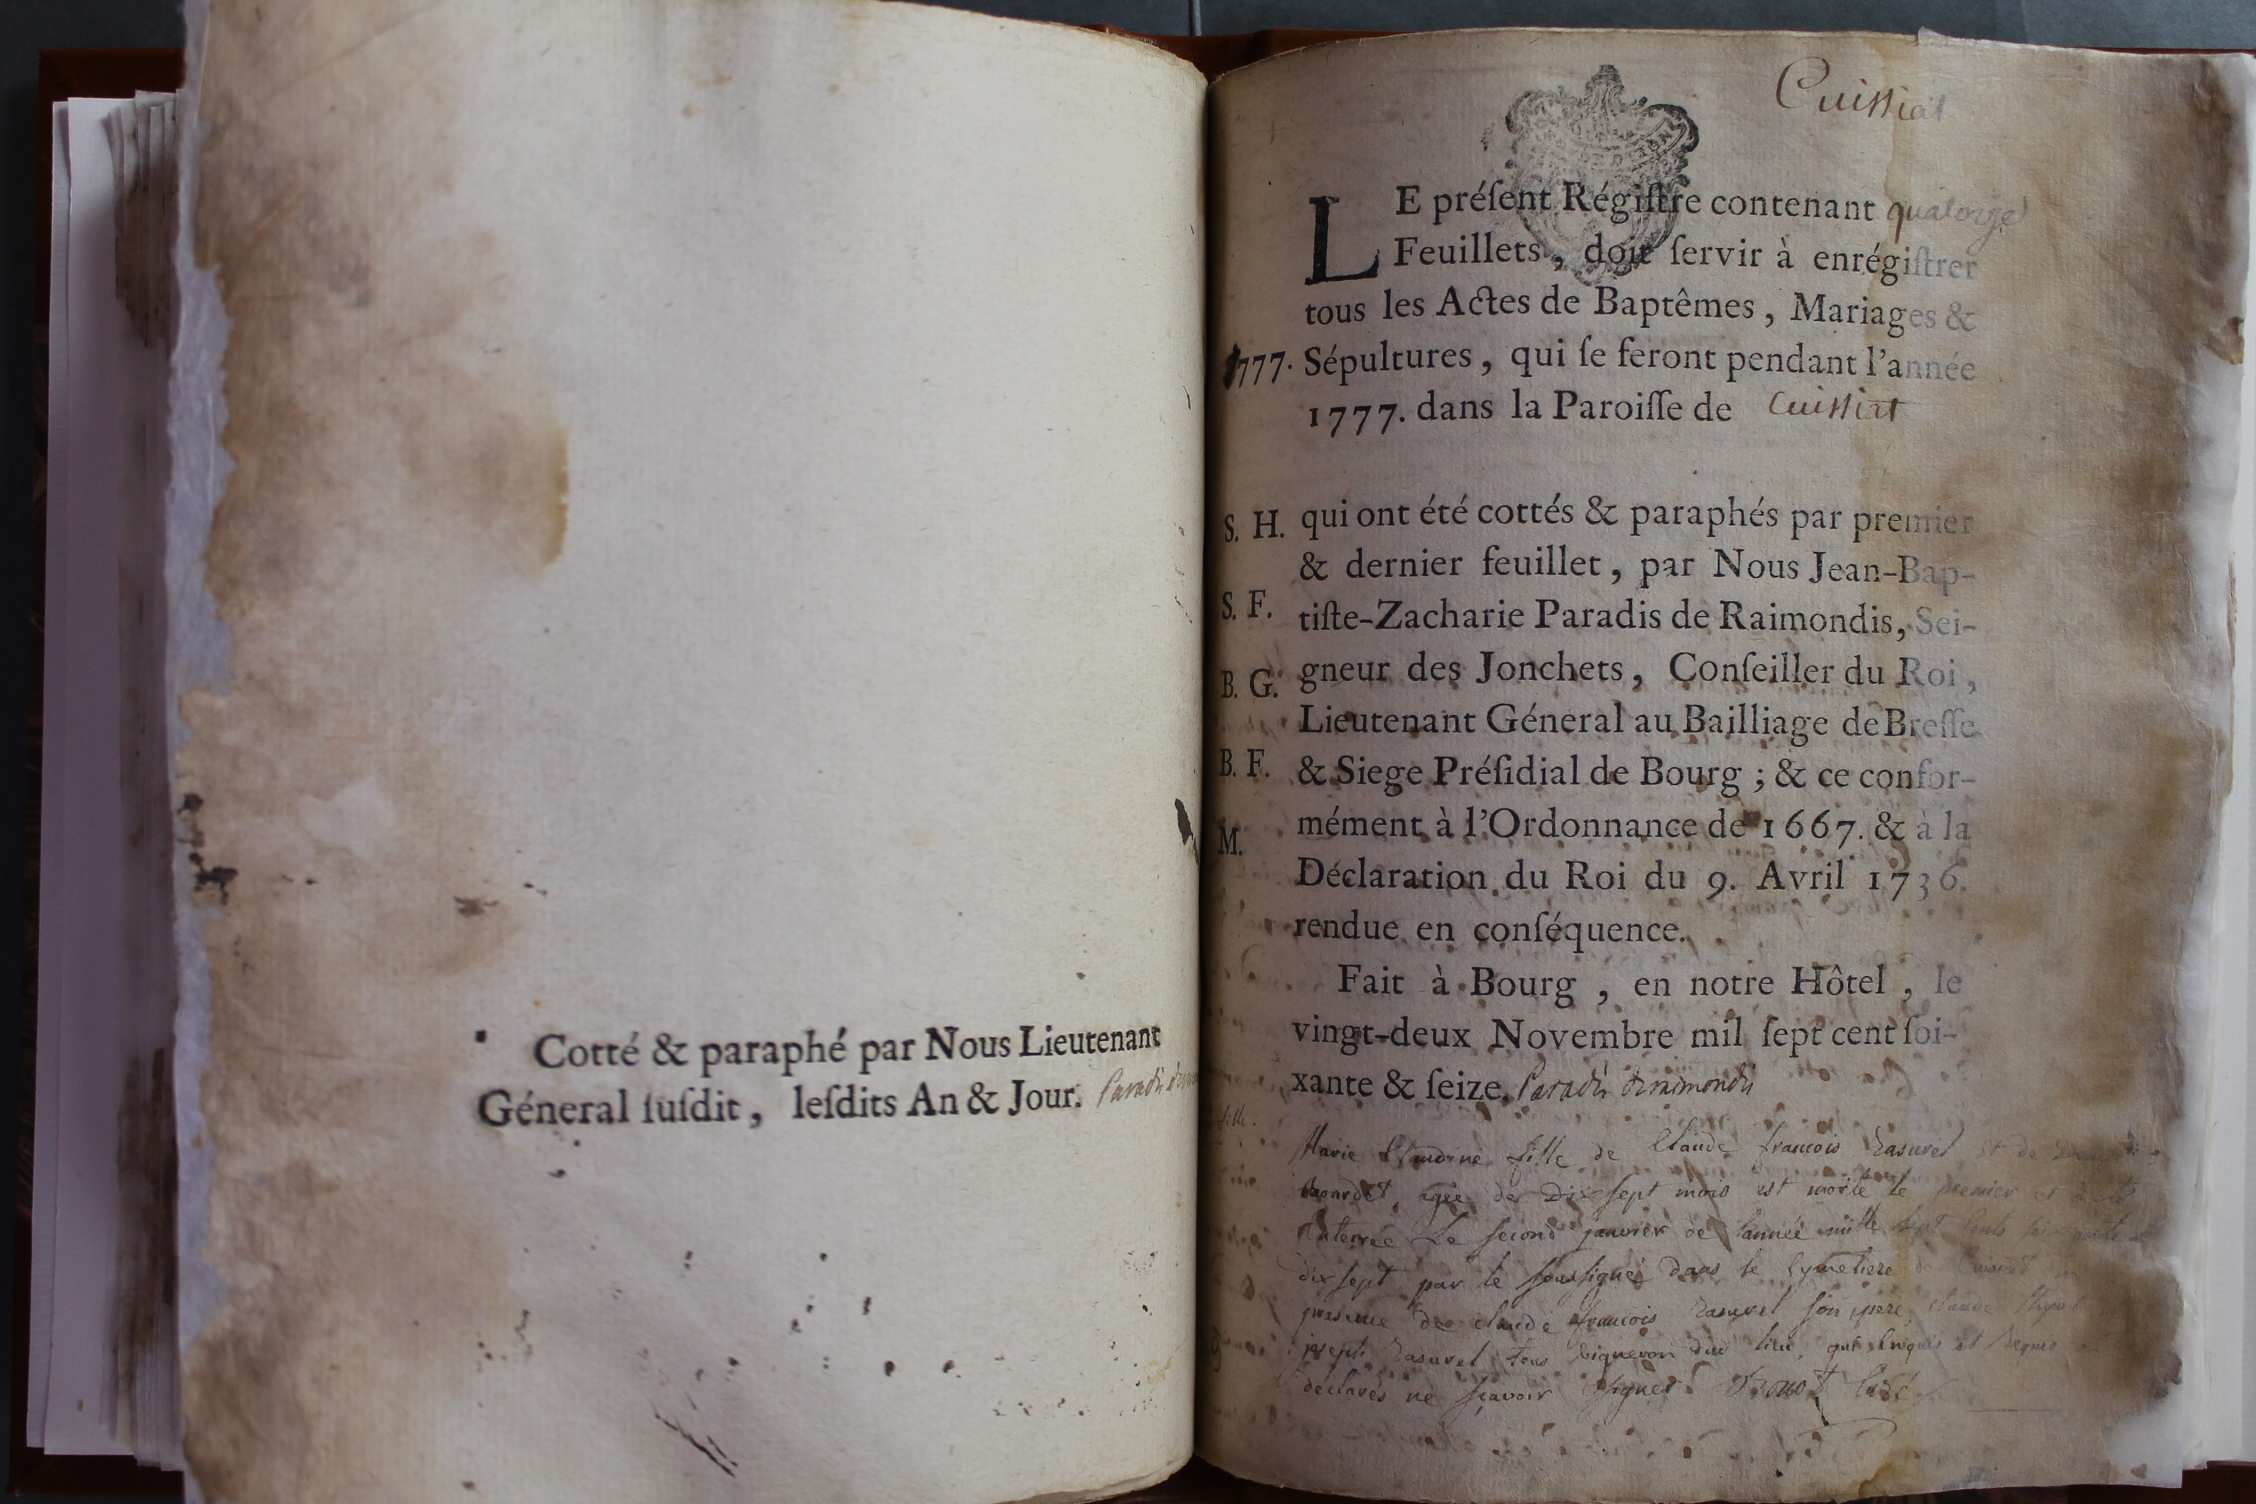 Cotté & paraphé par Nous Lieutenant
Géneral ſuſdit, leſdits An & Jour. Paradis
Cuissiat
LE préſent Régiſtre contenant quatorze
Feuillets, doit ſervir à enrégiſtrer
tous les Actes de Baptêmes, Mariages &
1777. Sépultures, qui ſe feront pendant l'année
1777. dans la Paroiſſe de Cuissiat
S. H. qui ont été cottés & paraphés par premier
& dernier feuillet, par Nous Jean-Bap-
S. F. tiſte-Zacharie Paradis de Raimondis, Sei-
B. G. gneur des Jonchets, Conſeiller du Roi,
Lieutenant Géneral au Bailliage de Breſſe
B. F. & Siege Préſidial de Bourg ; & ce confor-
M. mément à l'Ordonnance de 1667. & à la
Déclaration du Roi du 9. Avril 1736.
rendue en conſéquence.
Fait à Bourg, en notre Hôtel, le
vingt-deux Novembre mil ſept cent ſoi-
xante & ſeize. Paradis deraimondis
fille.
Marie Claudine fille de Claude francois Rasurel et de
agée de Dix sept mois est morte le premier et a été
Enterrée Le second janvier de l'année mille sept Cents soixante
dix sept par le soussigné dans le Cymetiere
presence de claude francois Rasurel son pere, claude
joseph Rasurel tous vigneron du lieu, qui Enquis et Requis
déclarés ne sçavoir signer. Curé